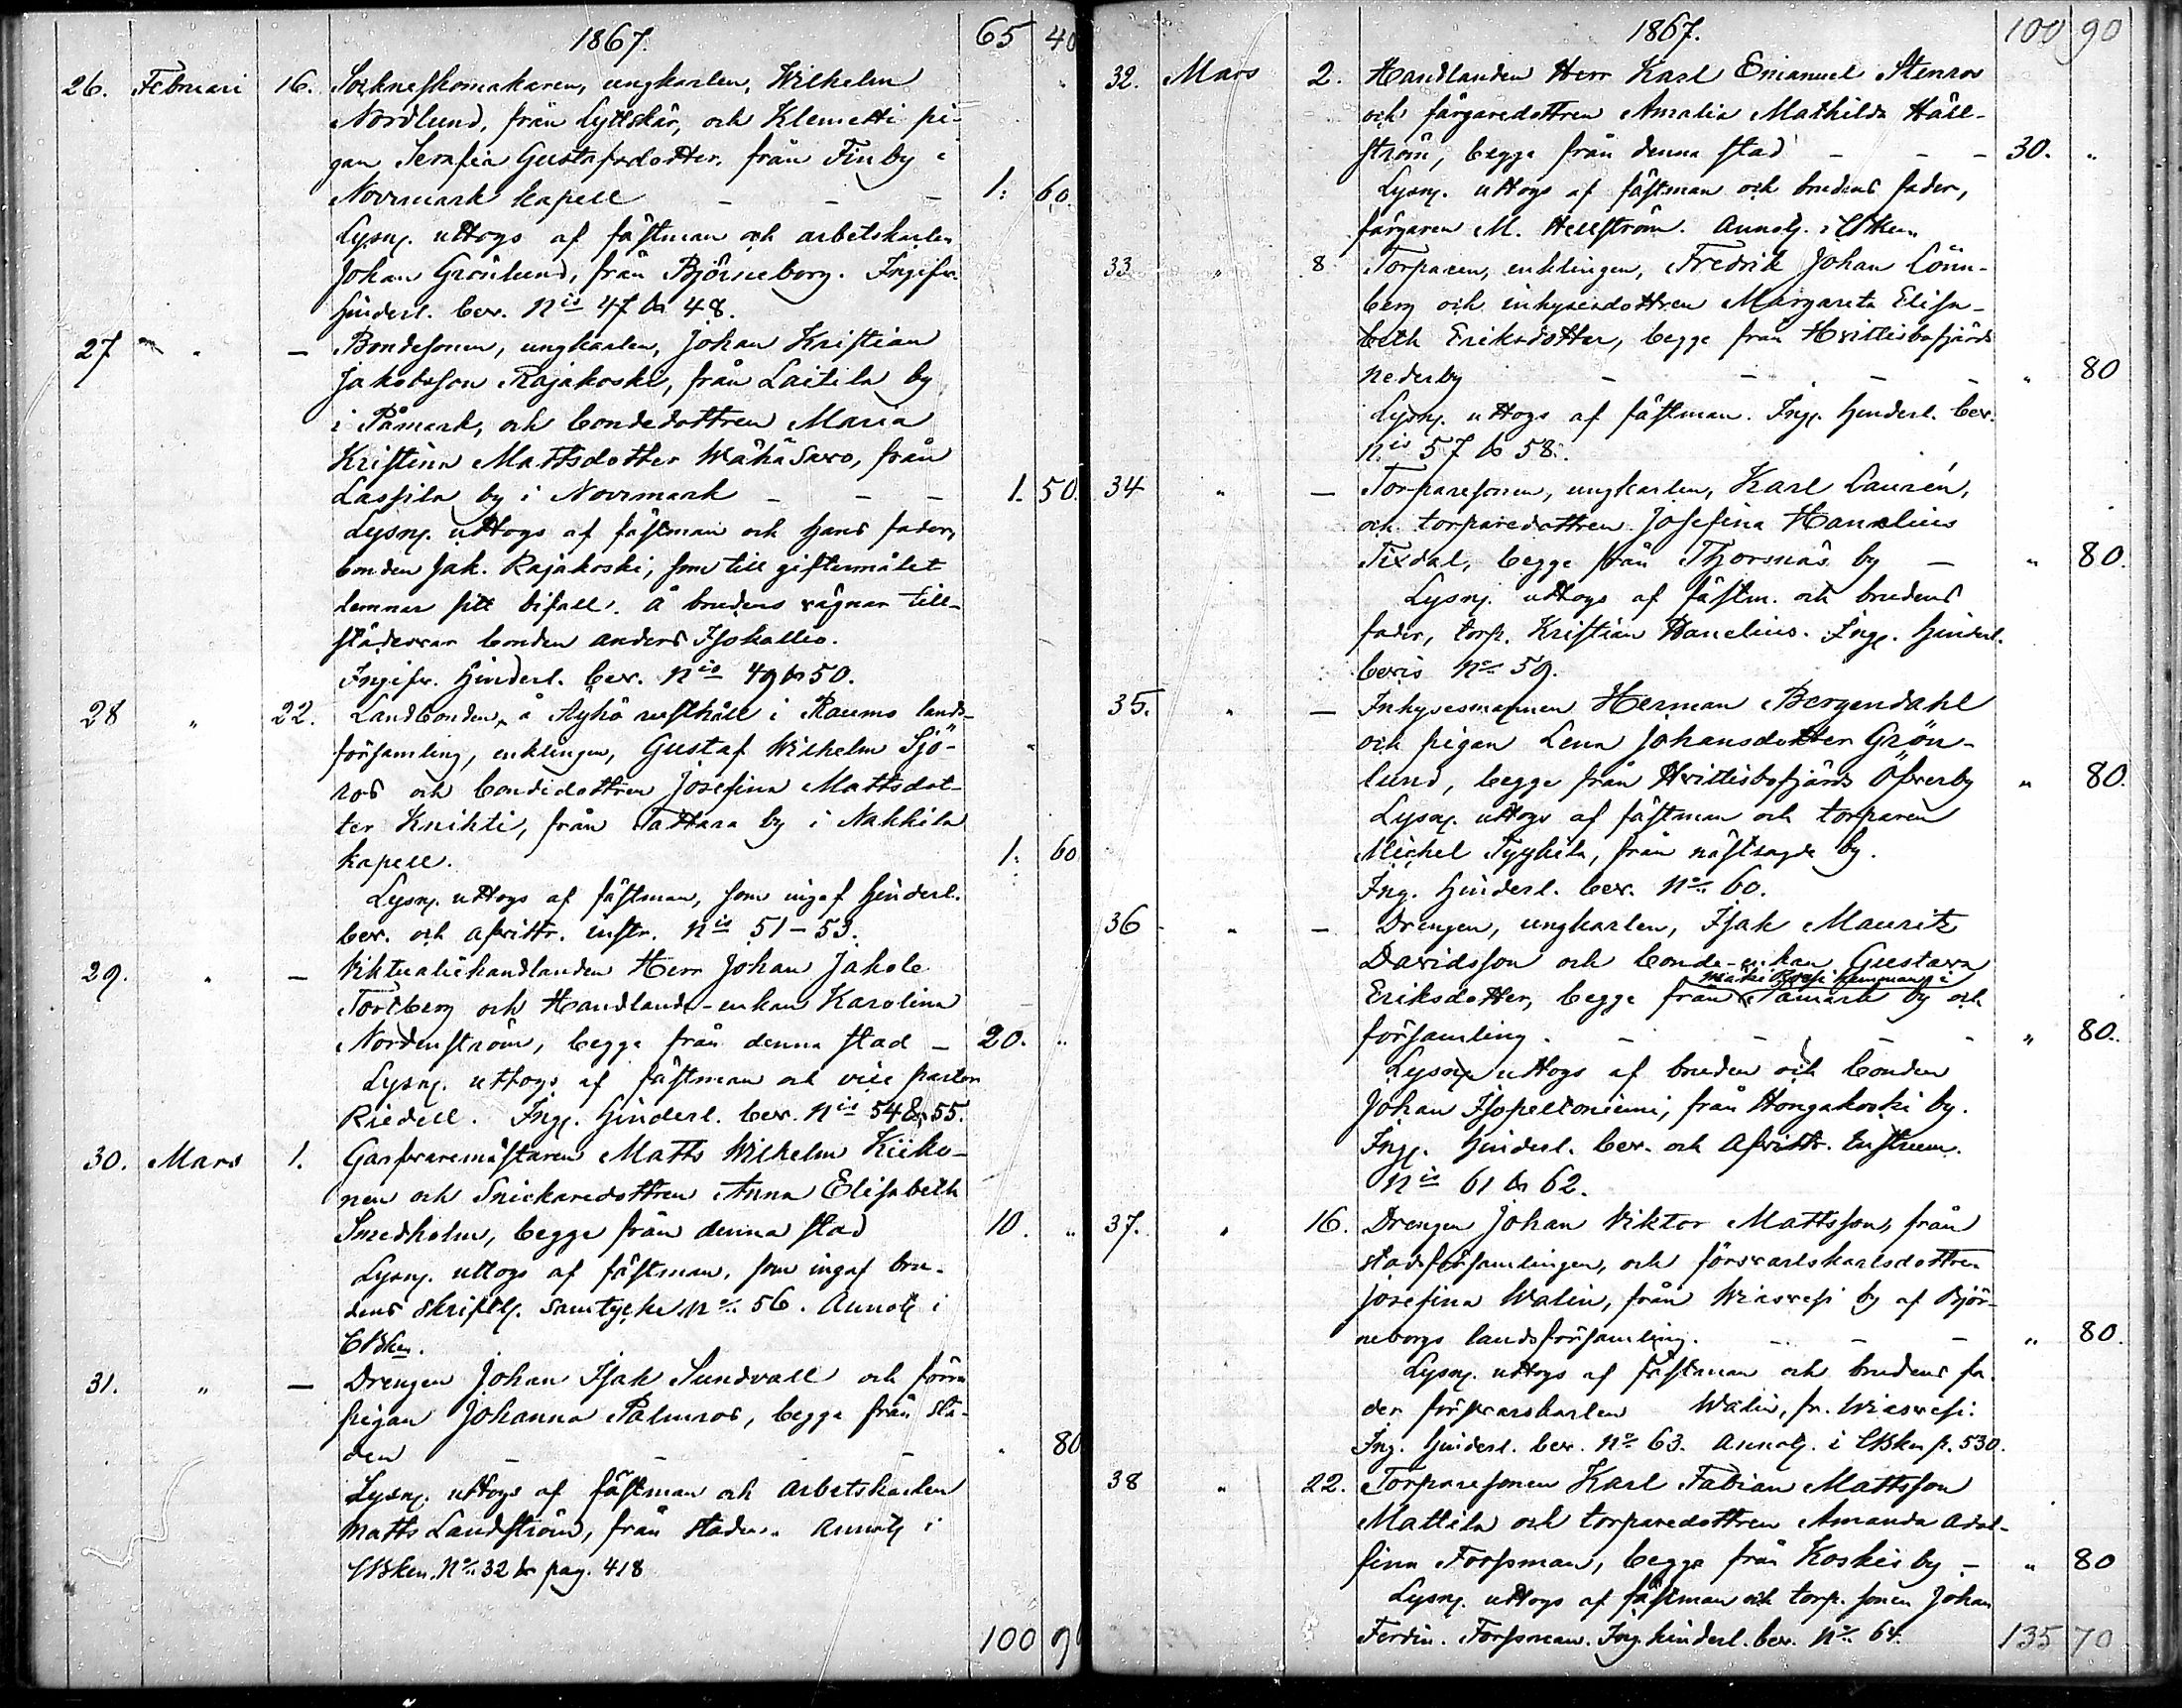 1867. 65 40
26. Februari 16. Sockneskomakaren, ungkarlen, Wilhelm
Nordlund, från Lyttskär, och Klemetti pi-
gan Serafia Gustafsdotter, från Finby i
Norrmark kapell - - - 1: 60.
Lysng. uttogs af fästman och arbetskarlen
Johan Grönlund, från Björneborg. Ingifv.
hinderl. bev. Nis 47 & 48.
27 " — Bondesonen, ungkarlen, Johan Kristian
Jakobsson Rajakoski, från Laitila by
i Påmark, och bondedottren Maria
Kristina Mattsdotter Wähä Savo, från
Lassila by i Norrmark - - - 1. 50.
Lysng. uttogs af fästman och hans fader,
bonden Jak. Rajakoski, som till giftermålet
lemnar sitt bifall. Å brudens vägnar till-
städesvar bonden Anders Isokallio.
Ingifv. hinderl. bev. Nis 49 & 50.
28 " 22. Landbonden å Äyhö rusthåll i Raumo lands-
församling, enklingen, Gustaf Wilhelm Sjö-
ros och bondedottren Josefina Mattsdot-
ter Knihti, från Tattara by i Nakkila
kapell. 1: 60
Lysng. uttogs af fästman, som ingaf hinderl.
bev. och afvittr. instr. Nis 51 - 53.
29. " — Viktualiehandlanden Herr Johan Jakob
Torkberg och Handlande-enkan Karolina
Nordenström, begge från denna stad - 20. "
Lysng. uttogs af fästman och vice pastor
Riedell. Ingg. hinderl. bev. Nis 54 & 55.
30. Mars 1. Garfvaremästaren Matts Wilhelm Kiiko-
nen och Snickaredottren Anna Elisabeth
Smedholm, begge från denna stad 10. "
Lysng. uttogs af fästman, som ingaf bru-
dens skriftlg. samtycke No 56. Annotg i
CBken.
31. " — Drengen Johan Isak Sundvall och förra
pigan Johanna Palmros, begge från sta-
den - - - " 80
Lysng. uttogs af fästman och arbetskarlen
Matts Landström, från staden. Annotg i
CBken. No 32 & pag. 418
100 9
1867. 100 90
32. Mars 2. Handlanden Herr Karl Emanuel Stenros
och färgaredottren Amalia Mathilda Häll-
ström, begge från denna stad - - - 30. "
Lysng. uttogs af fästman och brudens fader,
färgaren M. Hellström. Annotg. i CBken.
33 " 8. Torparen, enklingen, Fredrik Johan Lönn-
berg och inhysesdottren Margareta Elisa-
beth Eriksdotter, begge från Hvittisbofjärds
Nederby - - - - " 80
Lysng. uttogs af fästman. Ingg. hinderl. bev.
Nis 57 & 58.
34 " — Torparesonen, ungkarlen, Karl Laurén,
och torparedottren Josefina Hanelius
Tixdal, begge från Thjorsnäs by — " 80.
Lysng. uttogs af fästm. och brudens
fader, torp. Kristian Hanelius. Ingg. hinderl.
bevis No 59.
35. " — Inhysesmannen Herman Bergendahl
och pigan Lena Johansdotter Grön-
lund, begge från Hvittisbofjärds Öfverby " 80.
Lysng. uttogs af fästman och torparen
Michel Tyykilä, från nästsagde by.
Ing. hinderl. bev. No 60.
36 " — Drengen, ungkarlen, Isak Mauritz
Davidsson och bonde-enkan Gustava
Mäki Rossi hemman i
Eriksdotter, begge från Påmark by och
församling. - - - - " 80.
Lysng uttogs af bruden och bonden
Johan Isopeltoniemi, från Hongakoski by.
Ingg. hinderl. bev. och afvittr. Instrum.
Nis 61 & 62.
37. " 16. Drengen Johan Viktor Mattsson, från
stadsförsamlingen, och försvarskarlsdottren
Josefina Walin, från Wiasvesi by af Björ-
neborgs landsförsamling. - - - " 80.
Lysng. uttogs af fästman och brudens fa-
der försvarskarlen Walin, fr. Wiasvesi.
Ing. hinderl. bev. No 63. Annotg. i CBken p. 530.
38 " 22. Torparesonen Karl Fabian Mattsson
Mattila och torparedottren Amanda Adol-
fina Forssman, begge från Koskis by - " 80
Lysng. uttogs af fästman och torp. sonen Johan
Ferdin. Forssman. Ing. hinderl. bev. No 64. 135 70